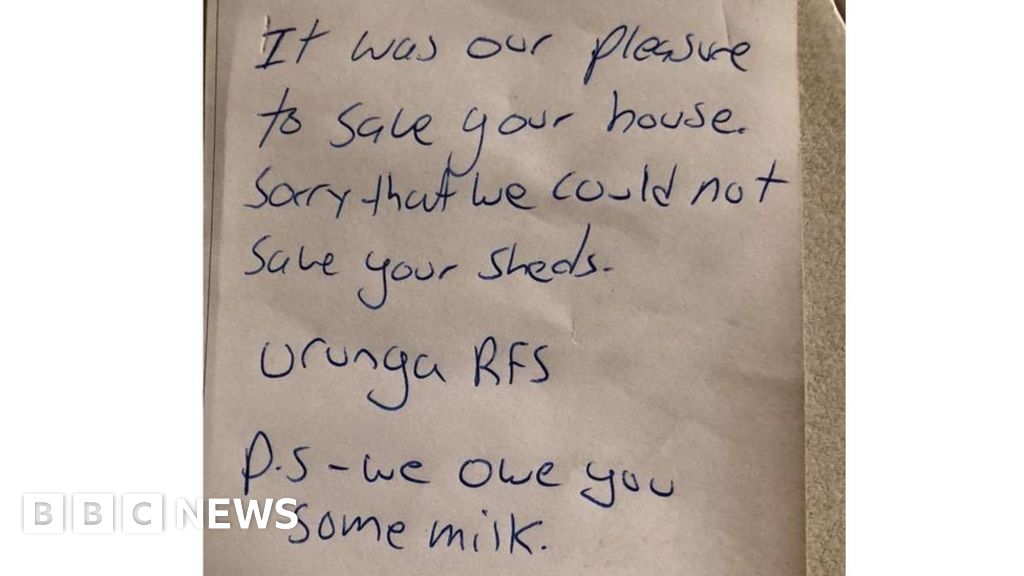 It was our pleasure
to save your house.
Sorry that we could not
save your sheds.
Urunga RFS
P.S - we owe you
some milk.
BBC NEWS